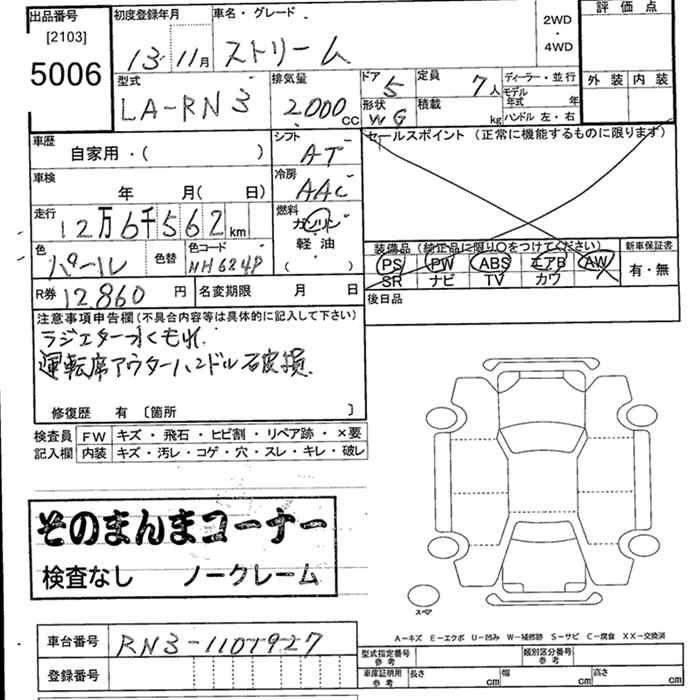 出品番号 初度登録年月 車名・グレード 2WD・4WD 評価点
[2103]
5006 13年11月 ストリーム 外装 内装
型式 排気量 ドア 5 定員 7人 ディーラー・並行
LA-RN3 2,000cc 形状 WG 積載 kg モデル年式 年
ハンドル 左・右
車歴 自家用・( ) シフト AT セールスポイント (正常に機能するものに限ります)
車検 年 月( 日) 冷房 AAC
走行 12万6千562km 燃料 ガソリン
軽油
( )
色 パール 色替 色コード NH624P
装備品 (純正品に限り○をつけてください) 新車保証書
PS PW ABS エアB AW 有・無
SR ナビ TV カワ
R券 12,860円 名変期限 月 日 後日品
注意事項申告欄(不具合内容等は具体的に記入して下さい)
ラジエター水くもれ.
運転席アウターハンドル破損.
修復歴 有 〔箇所 〕
検査員 FW キズ・飛石・ヒビ割・リペア跡・×要
記入欄 内装 キズ・汚レ・コゲ・穴・スレ・キレ・破レ
そのまんまコーナー
検査なし ノークレーム
スペア
A-キズ E-エクボ U-凹み W-補修跡 S-サビ C-腐食 XX-交換済
車台番号 RN3-1101927
登録番号
型式指定番号 参考 類別区分番号 参考
車庫証明用 参考 長さ cm 幅 cm 高さ cm